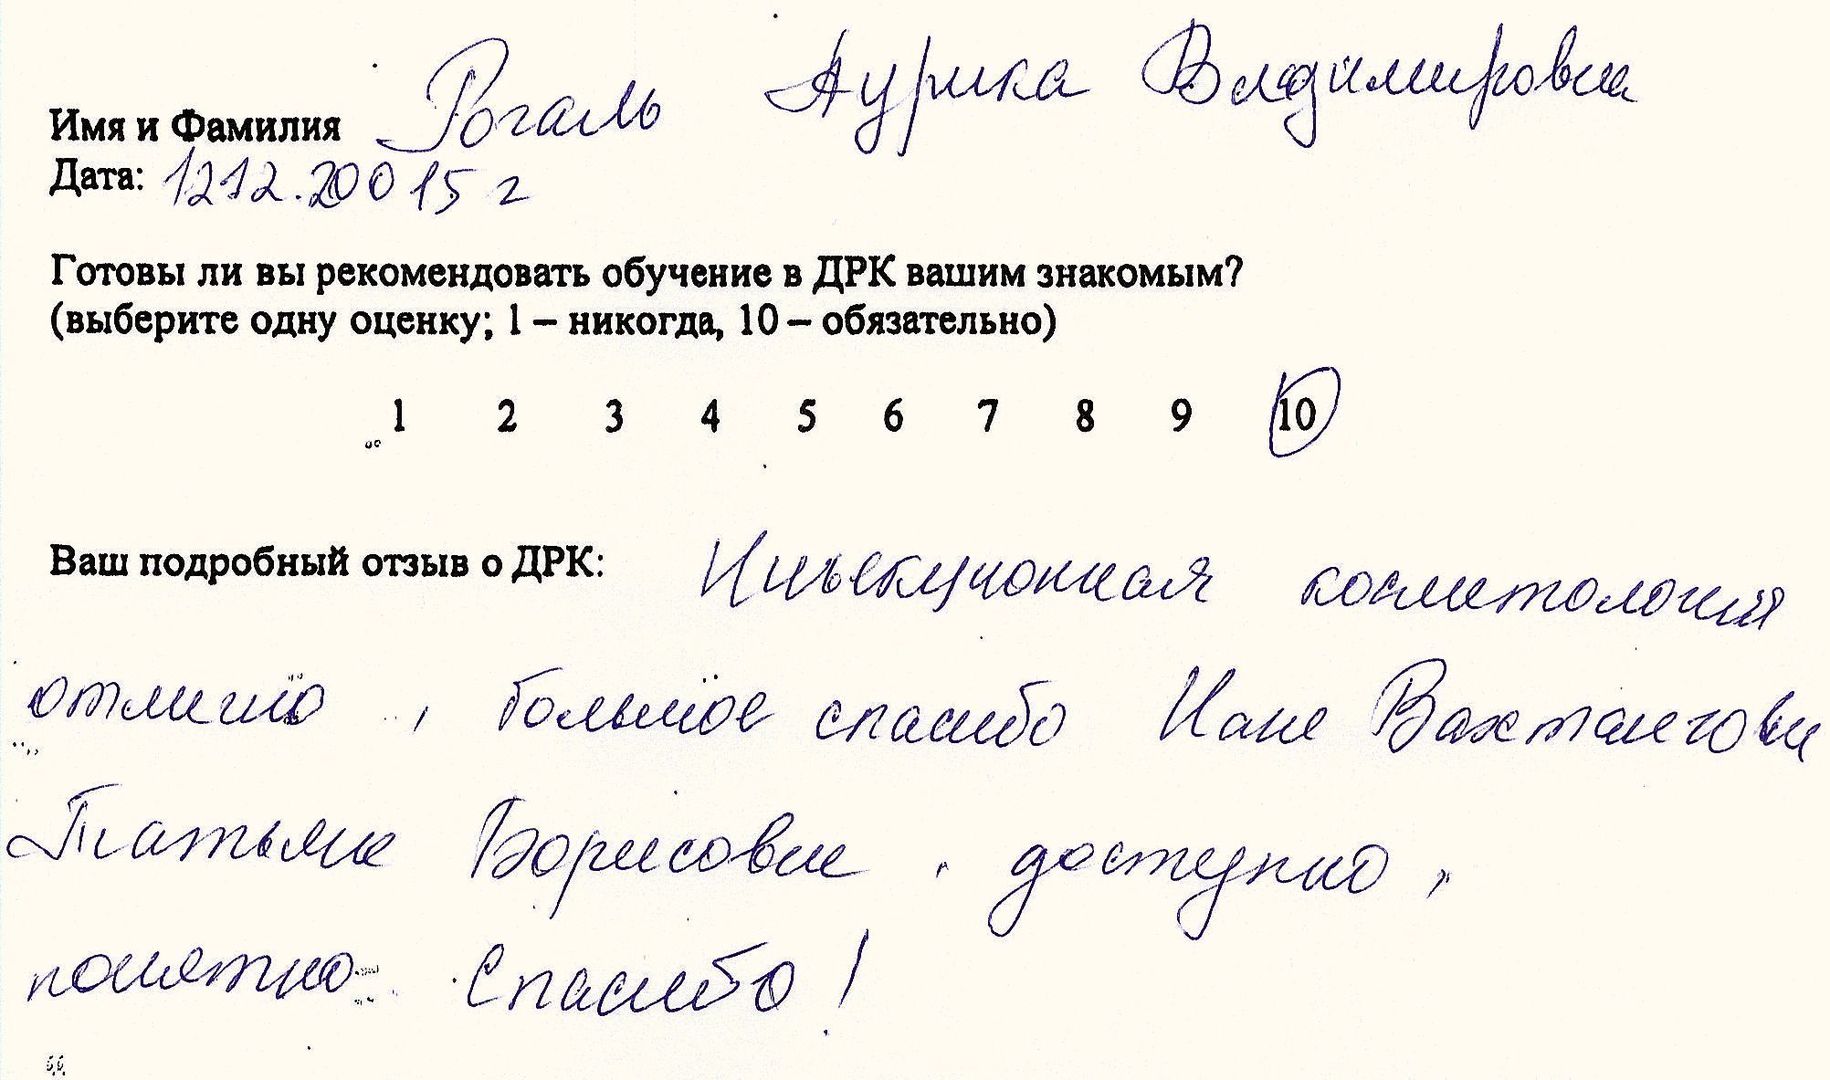 Рогаль Аурика Владимировна
Имя и Фамилия
Дата: 1212.20015 г
Готовы ли вы рекомендовать обучение в ДРК вашим знакомым?
(выберите одну оценку; 1 – никогда, 10 – обязательно)
1 2 3 4 5 6 7 8 9 10
Ваш подробный отзыв о ДРК: Инъекционная косметология
отлично, большое спасибо Нане Вахтанговне
Татьяне Борисовне, доступно,
понятно. Спасибо!